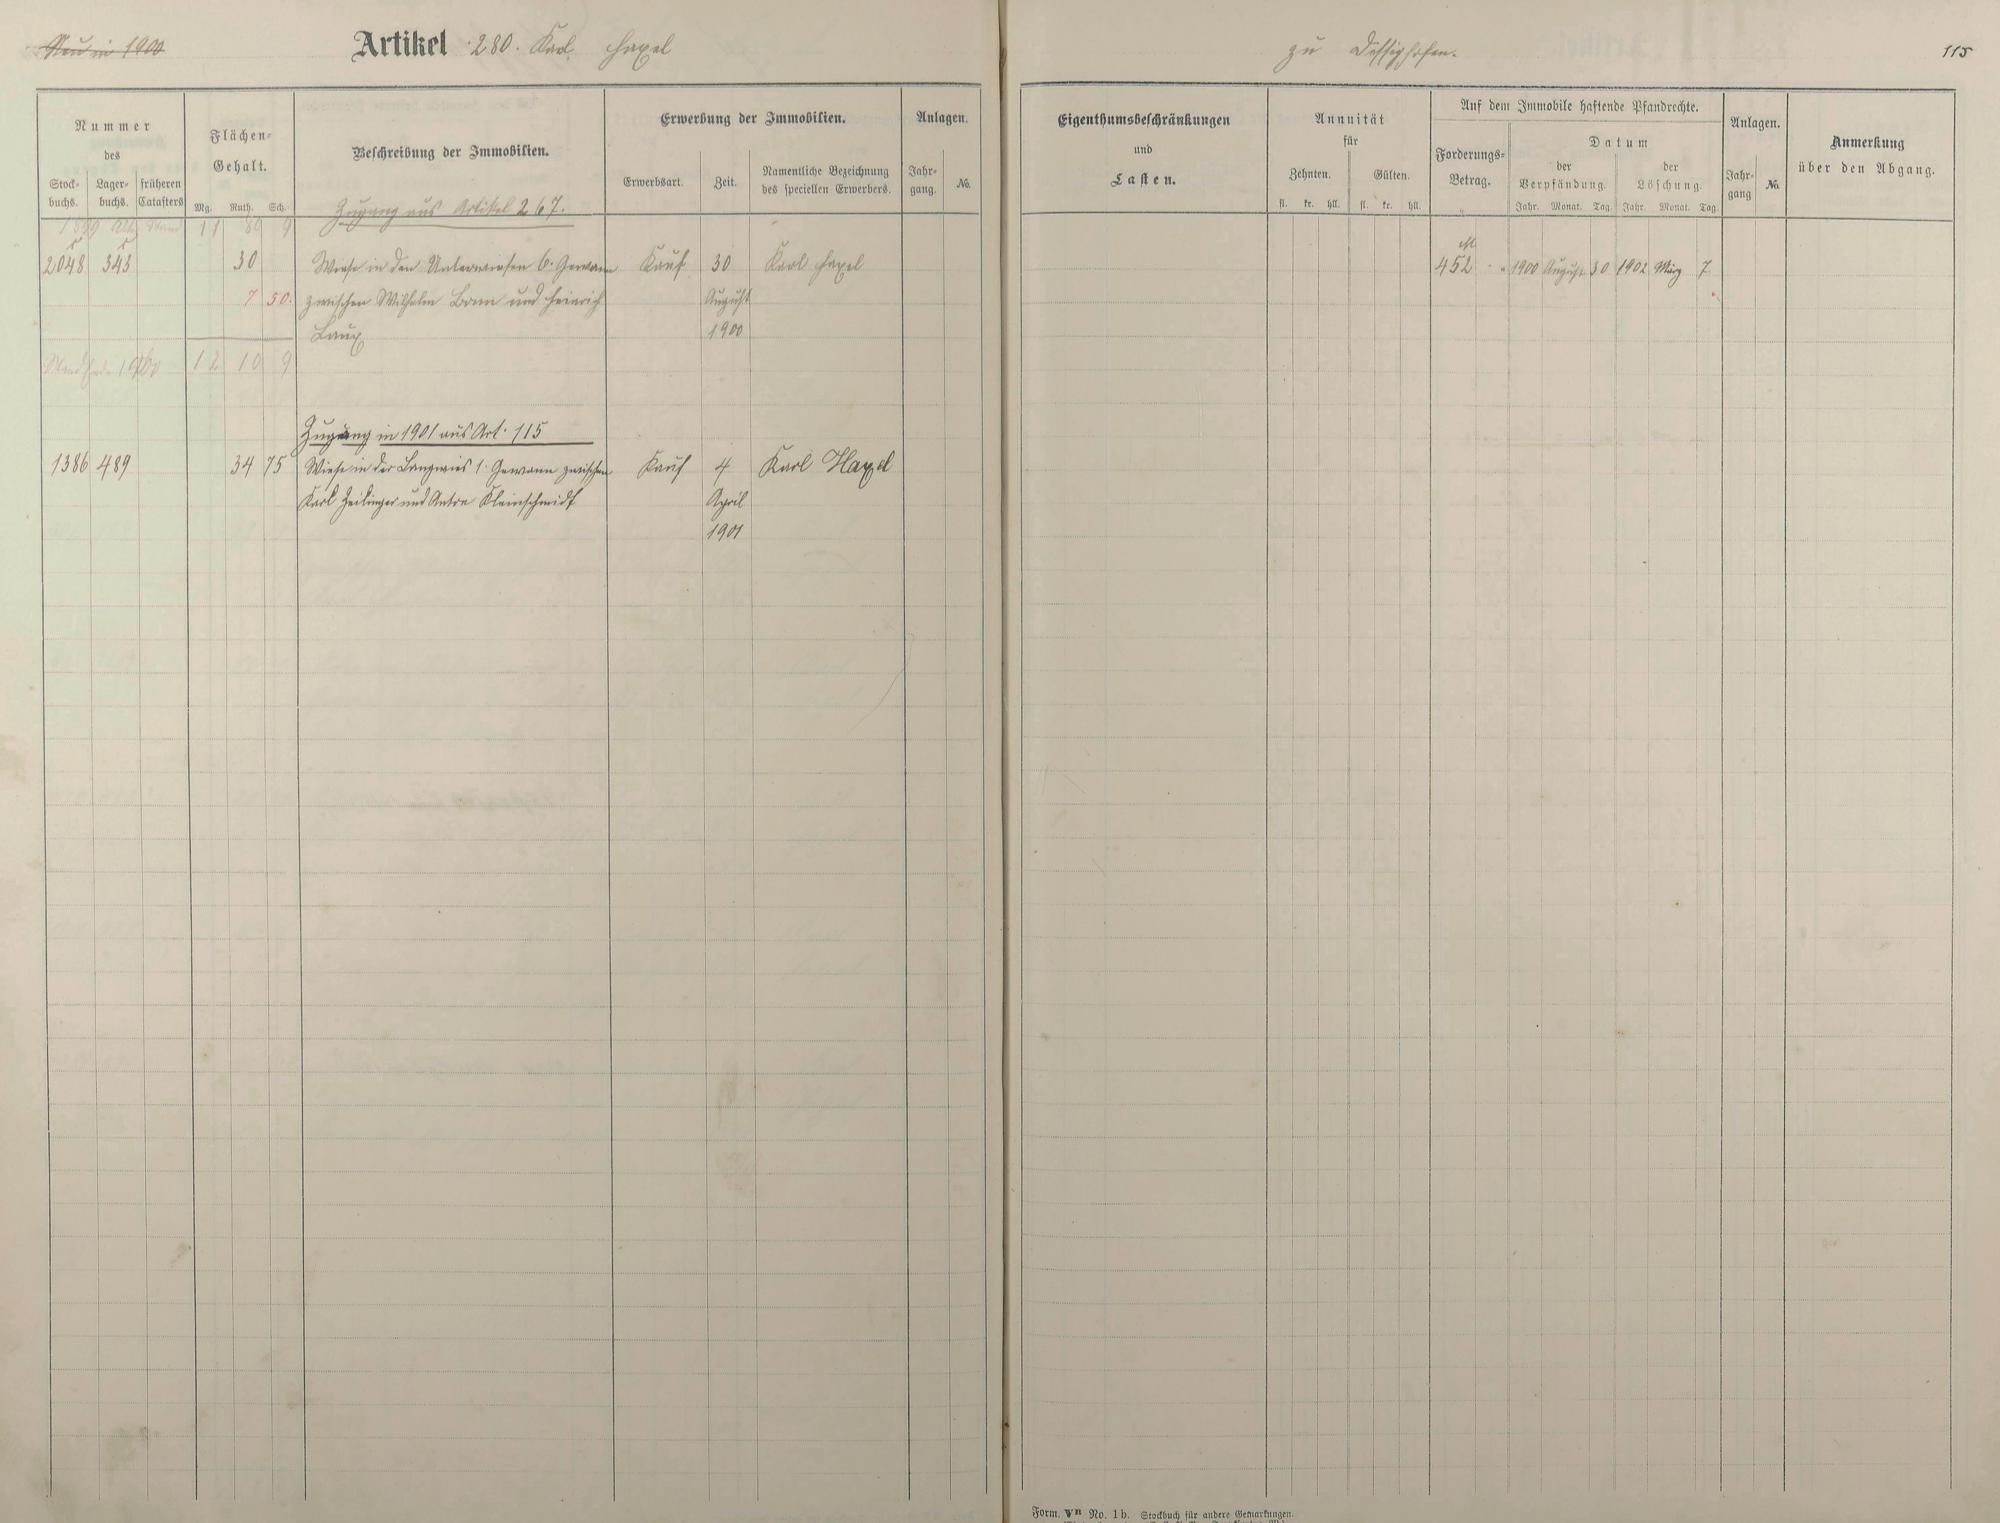 Neu in 1900
Artikel 280. Karl Haxel
zu Dessighofen.
115
Nummer
des
Stock-
buchs.
Lager-
buchs.
früheren
Catasters
Flächen-
Gehalt.
Mg. Ruth. Sch.
Beschreibung der Immobilien.
Erwerbung der Immobilien.
Erwerbsart.
Zeit.
Namentliche Bezeichnung
des speciellen Erwerbers.
Anlagen.
Jahr-
gang.
No.
Eigenthumsbeschränkungen
und
Lasten.
Annuität
für
Zehnten.
Gülten.
fl. kr. hll. fl. kr. hll.
Auf dem Immobile haftende Pfandrechte.
Forderungs-
Betrag.
Datum
der
Verpfändung.
der
Löschung.
Jahr. Monat. Tag. Jahr. Monat. Tag.
Anlagen.
Jahr-
gang
No.
Anmerkung
über den Abgang.
Zugang aus Artikel 267.
11 80 9
2048 343 30 Wiese in den Unterwiesen 6. Gewann Kauf 30 Karl Haxel
M
452 1900 August 30 1902 März 7
7 50. zwischen Wilhelm Bonn und Heinrich August
Laux 1900
12 10 9
Zugang in 1901 aus Art. 115
1386 489 34 75 Wiese in der Langwies 1. Gewann zwischen Kauf 4 Karl Haxel
Karl Zeilinger und Anton Kleinschmidt April
1901
Form. Vn No. 1b. Stockbuch für andere Gemarkungen.